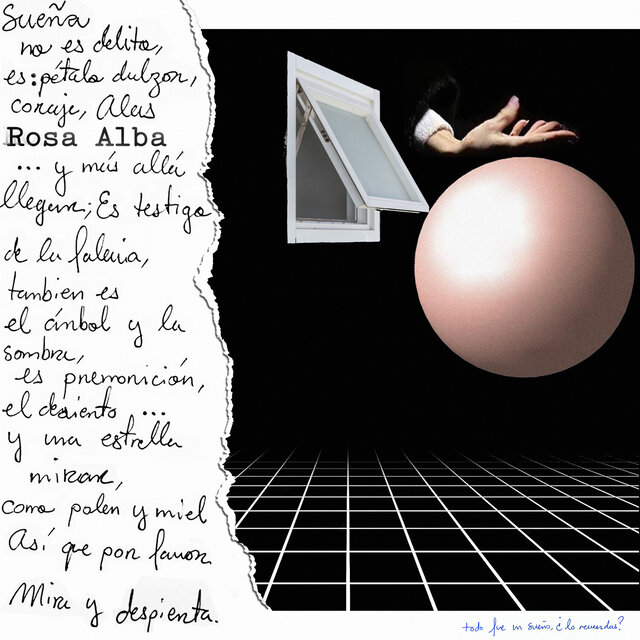 Sueña
no es delito,
es: pétalo dulzon,
coraje, Alas
Rosa Alba
... y más allá
llegan; Es testigo
de la
tambien es
el árbol y la
sombra,
es premonición,
el desierto ...
y una estrella
mirar,
como polen y miel
Así que por favor
Mira y despierta.
todo fue un sueño, ¿lo recuerdas?